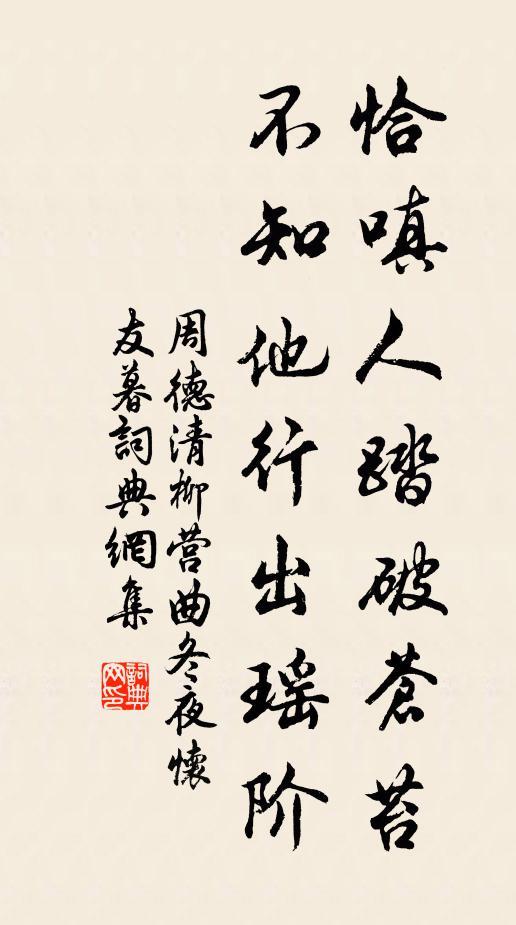 恰嗔人踏破蒼苔
不知他行出瑶阶
周德清柳营曲冬夜懷
友暮詞典網集
詞典
网印